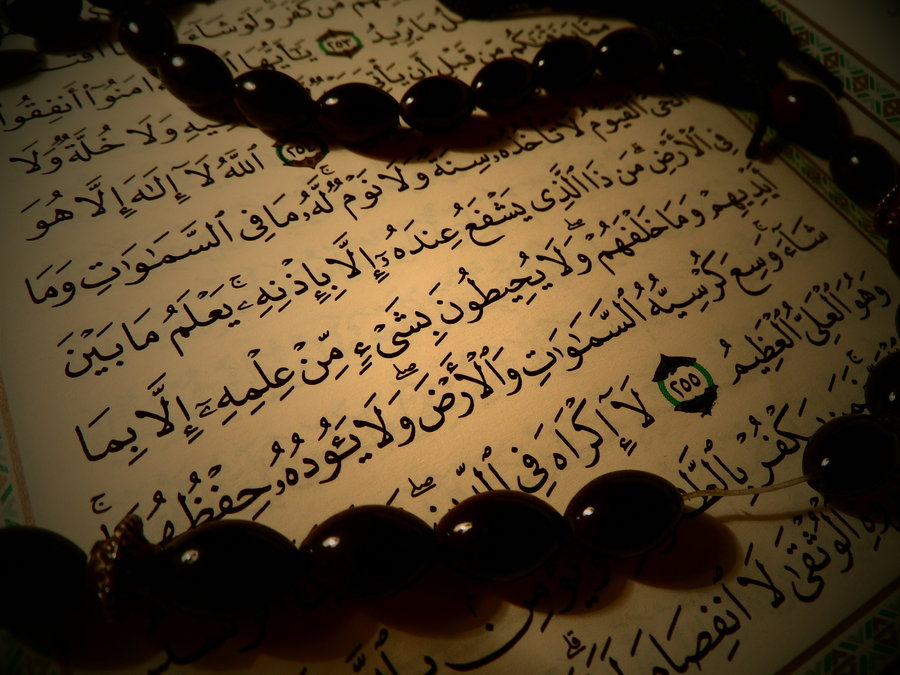 مَّن كَفَرَ وَلَوْ شَآءَ
مَا يُرِيدُ ٢٥٣ يَٰٓأَيُّهَا ءَامَنُوٓا۟ أَنفِقُوا۟
مِّن قَبْلِ أَن فِيهِ وَلَا خُلَّةٌ وَلَا
٢٥٤ ٱللَّهُ لَآ إِلَٰهَ إِلَّا هُوَ
ٱلْحَىُّ ٱلْقَيُّومُ لَا تَأْخُذُهُۥ سِنَةٌ وَلَا نَوْمٌ لَّهُۥ مَا فِى ٱلسَّمَٰوَٰتِ وَمَا
فِى ٱلْأَرْضِ مَن ذَا ٱلَّذِى يَشْفَعُ عِندَهُۥٓ إِلَّا بِإِذْنِهِۦ يَعْلَمُ مَا بَيْنَ
أَيْدِيهِمْ وَمَا خَلْفَهُمْ وَلَا يُحِيطُونَ بِشَىْءٍ مِّنْ عِلْمِهِۦٓ إِلَّا بِمَا
شَآءَ وَسِعَ كُرْسِيُّهُ ٱلسَّمَٰوَٰتِ وَٱلْأَرْضَ وَلَا يَـُٔودُهُۥ حِفْظُهُمَا
وَهُوَ ٱلْعَلِىُّ ٱلْعَظِيمُ ٢٥٥ لَآ إِكْرَاهَ فِى
يَكْفُرْ
ٱلْوُثْقَىٰ لَا ٱنفِصَامَ